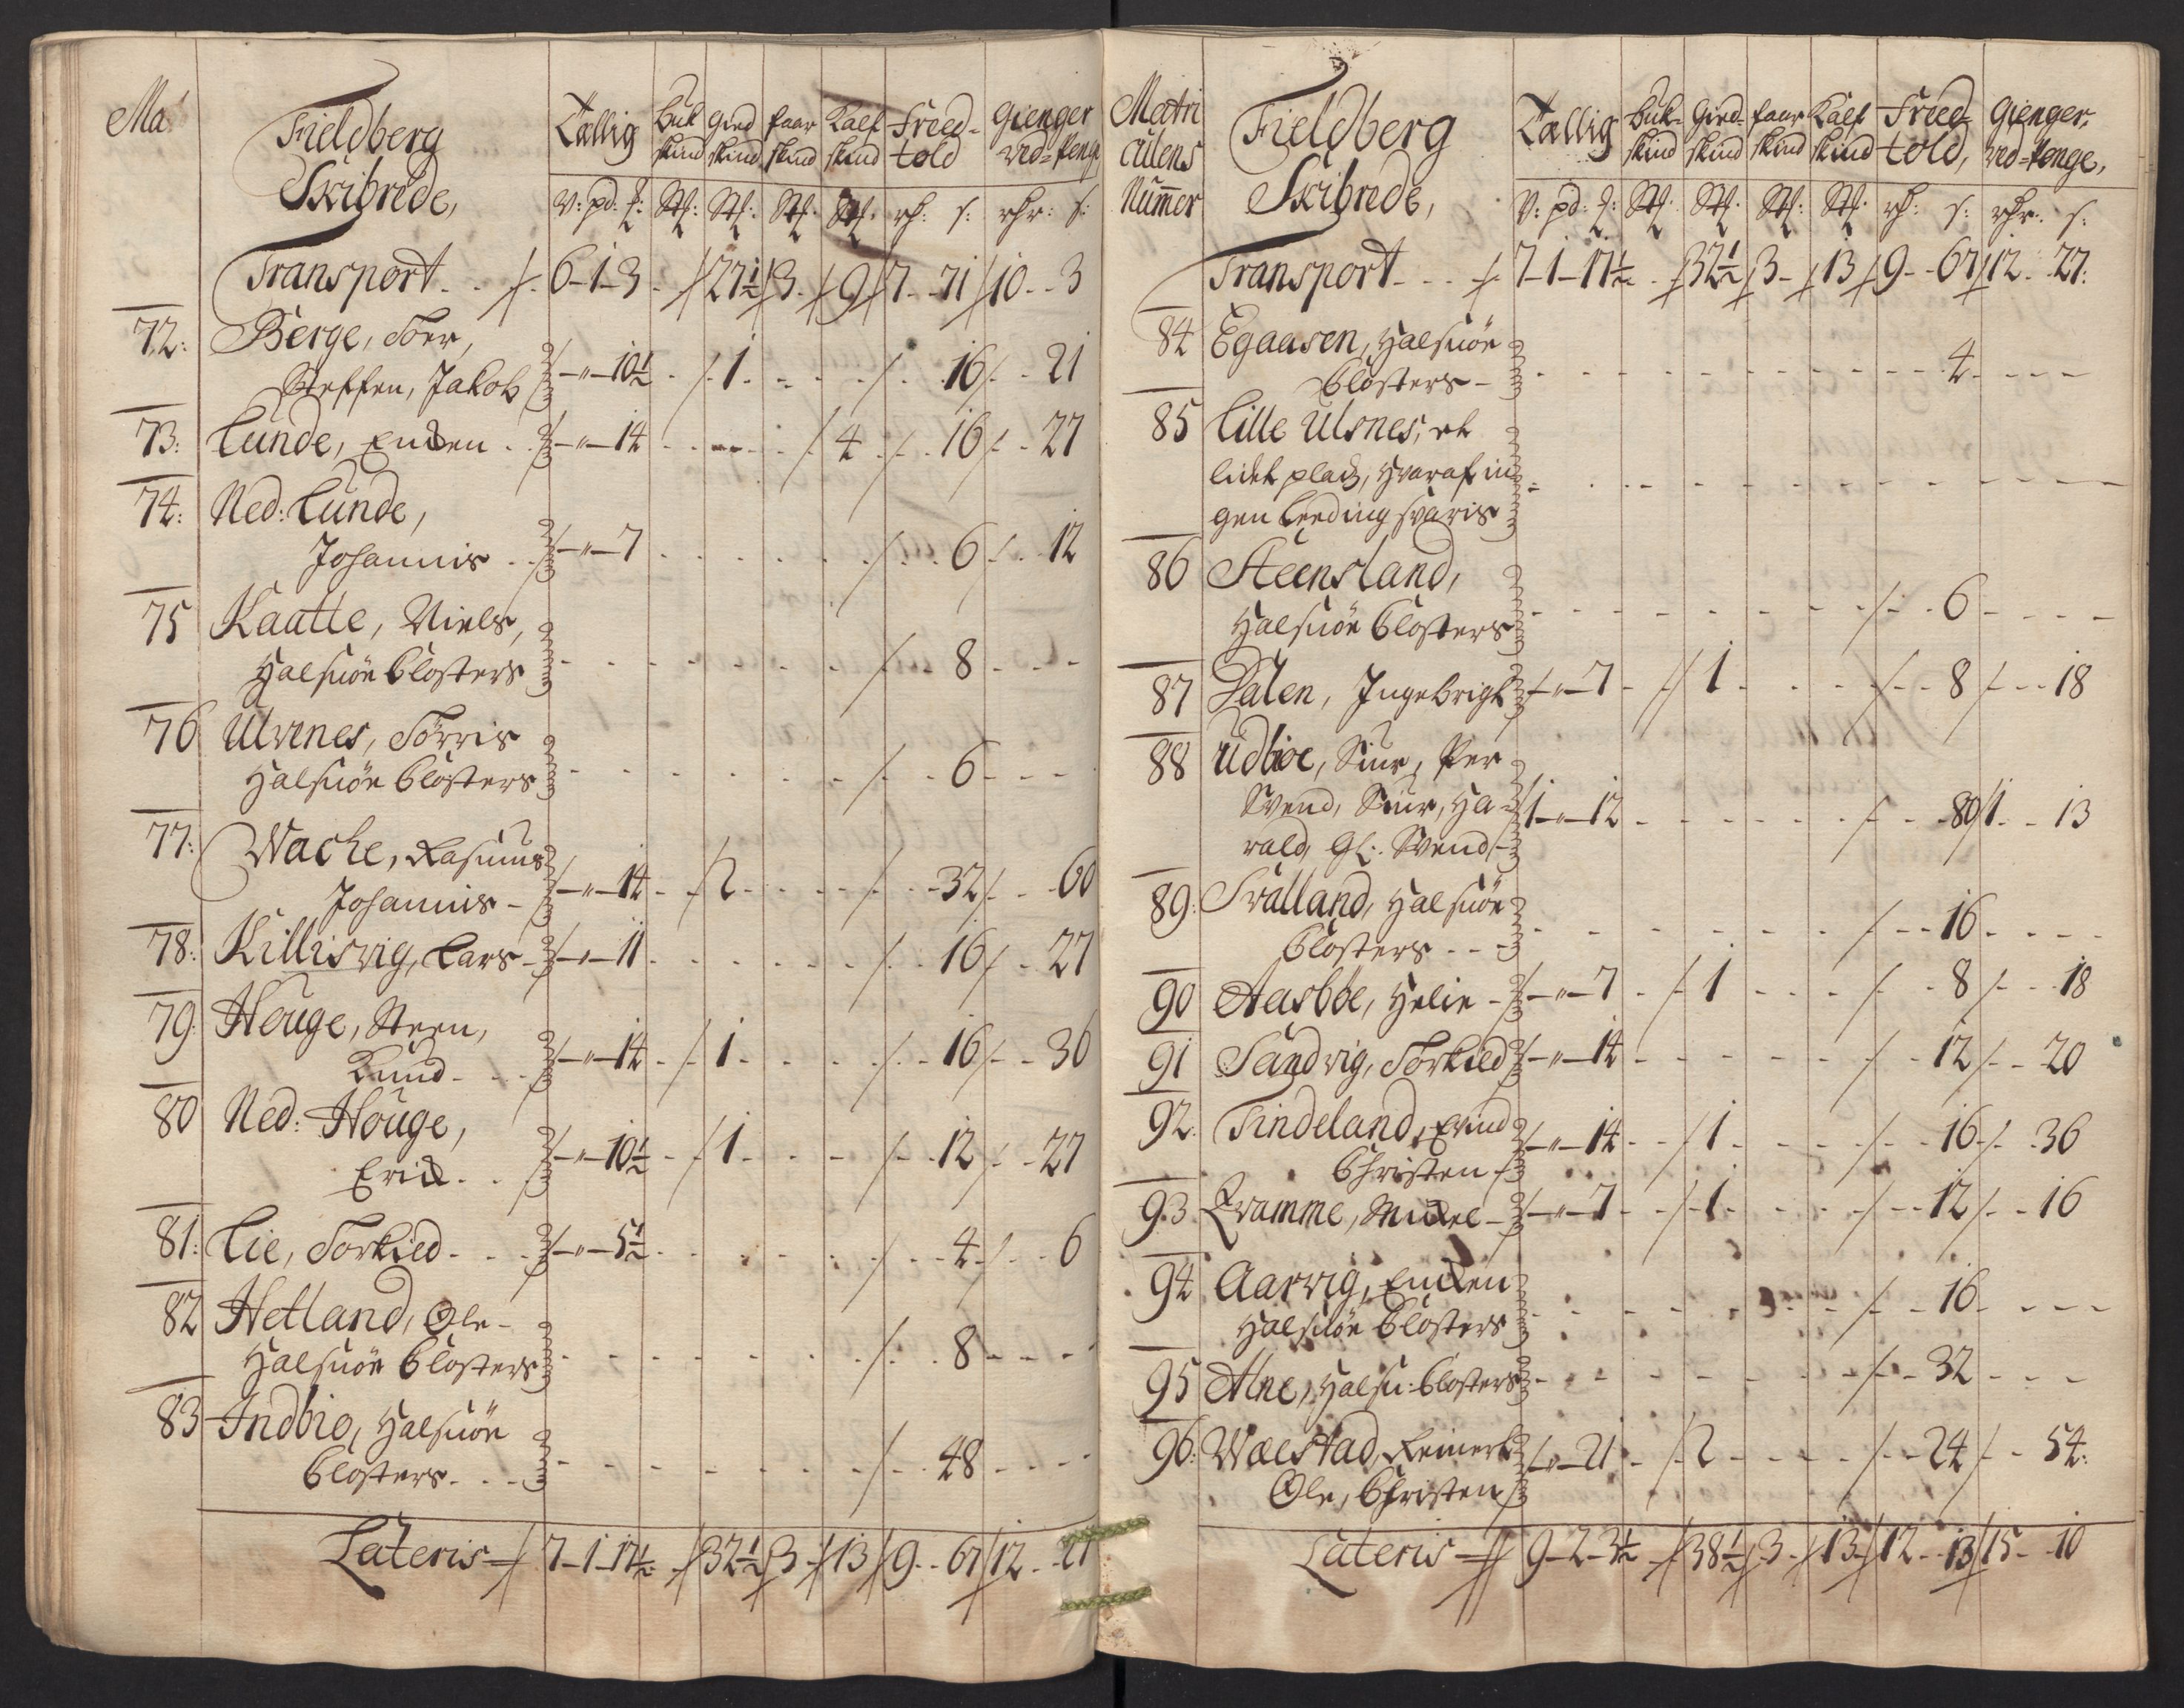 Ma
Fieldberg
Skibrede,
Tallig Buk skind Gied skind faar skind Kalf skind Freed-told Gienger ved-penge
V: pd: Stk: Stk: Stk: Stk: rh: s: rhr: s:
Transport. . 6-1-3 27½ 3. 9 7. 71 10. . 3
72: Berge, Toer,
Steffen, Jakob -"-10½ . 1. . . . 16 . 21
73: Lunde, Endren . -"-14 . . . . 4 . 16 . 27
74: Ned: Lunde,
Johannis . . -"-7 . . . . . . 6 . 12
75 Kaatte, Niels,
Halsnöe Closters - - - - - - 8 - - -
76 Ulvenes, Torris
Halsnöe Closters - - - - - - 6 - - -
77: Wache, Rasmus
Johannis - -"-14 - 2 - - - - 32 - 60
78: Killisvig, Lars - -"-11 . . . . . 16 . 27
79: Houge, Steen,
Knud - . . -"-14 - 1 - - - - 16 - - 36
80 Ned: Houge,
Erick . . -"-10½ - 1. - - - 12 - 27
81: Lie, Torkied . . . -"-5½ . . . . . 4 . 6
82 Hetland, Ole -
Halsnöe Closters - - - - - - 8 - - -
83 Indbio, Halsnöe
Closters . . . - - - - - - 48 - - - -
Lateris 7-1-17½ . 32½ 3 . 13 9 . . 67 12 . . 27
Matriculens Nummer
Fieldberg
Skibrede,
Tallig Buk-skind Gied-skind faar skind Kalf skind Freed-told, Gienger, ved-penge,
V: pd: Stk: Stk: Stk: Stk: rh: s: rhr: s:
Transport . . . 7-1-17½ . 32½ 3- 13 9 - - 67 12 . 27:
84 Egaasen, Halsnöe
Closters - - - - - - - - 4 - - - -
85 Lille Ulsnes, et
lidet plads, hvoraf in-
gen Leeding svaris - - - - - - - -
86 Steensland,
Halsnöe Closters - - - - - - - 6 - - - -
87 Dalen, Ingebrigt -"-7 - 1 - - - - 8 - - 18
88 Udbioe, Siur, Per
Svend, Siur, Ha-
vald, Gl: Svend - 1-"-12 - - - - - - 80 1 - - 13
89: Svalland, Halsnöe
Closters - - - - - - - - 16 - - - -
90 Aasböe, Helie - -"-7 - 1 - - - - 8 - - 18
91 Sandvig, Torkied -"-14 - - - - - - 12 - - 20
92. Tindeland, Erind
Christen -"-14 - - 1 - - - - 16 - 36
93 Qvamme, Mickel - -"-7 - - 1 - - - - 12 - 16
94 Aarvig, Endren
Halsnöe Closters - - - - - - 16 - - - -
95 Alne, Halsn: Closters - - - - - - 32 - - -
96: Wælstad, Reinert
Ole, Christen -"-21 - 2 - - - - 24 - 54:
Lateris 9-2-3½ - 38½ 3 - 13 12 - - 13 15 - 10